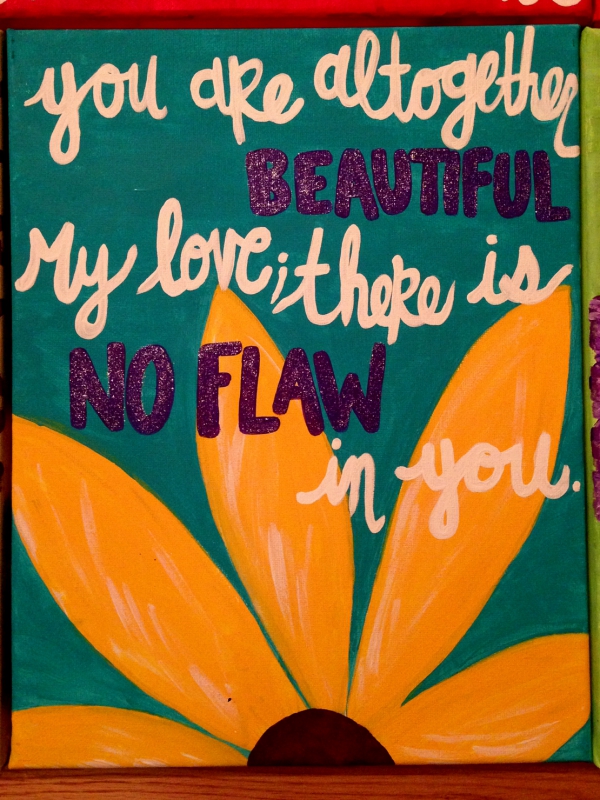 you are altogether
BEAUTIFUL
My love; there is
NO FLAW
in you.